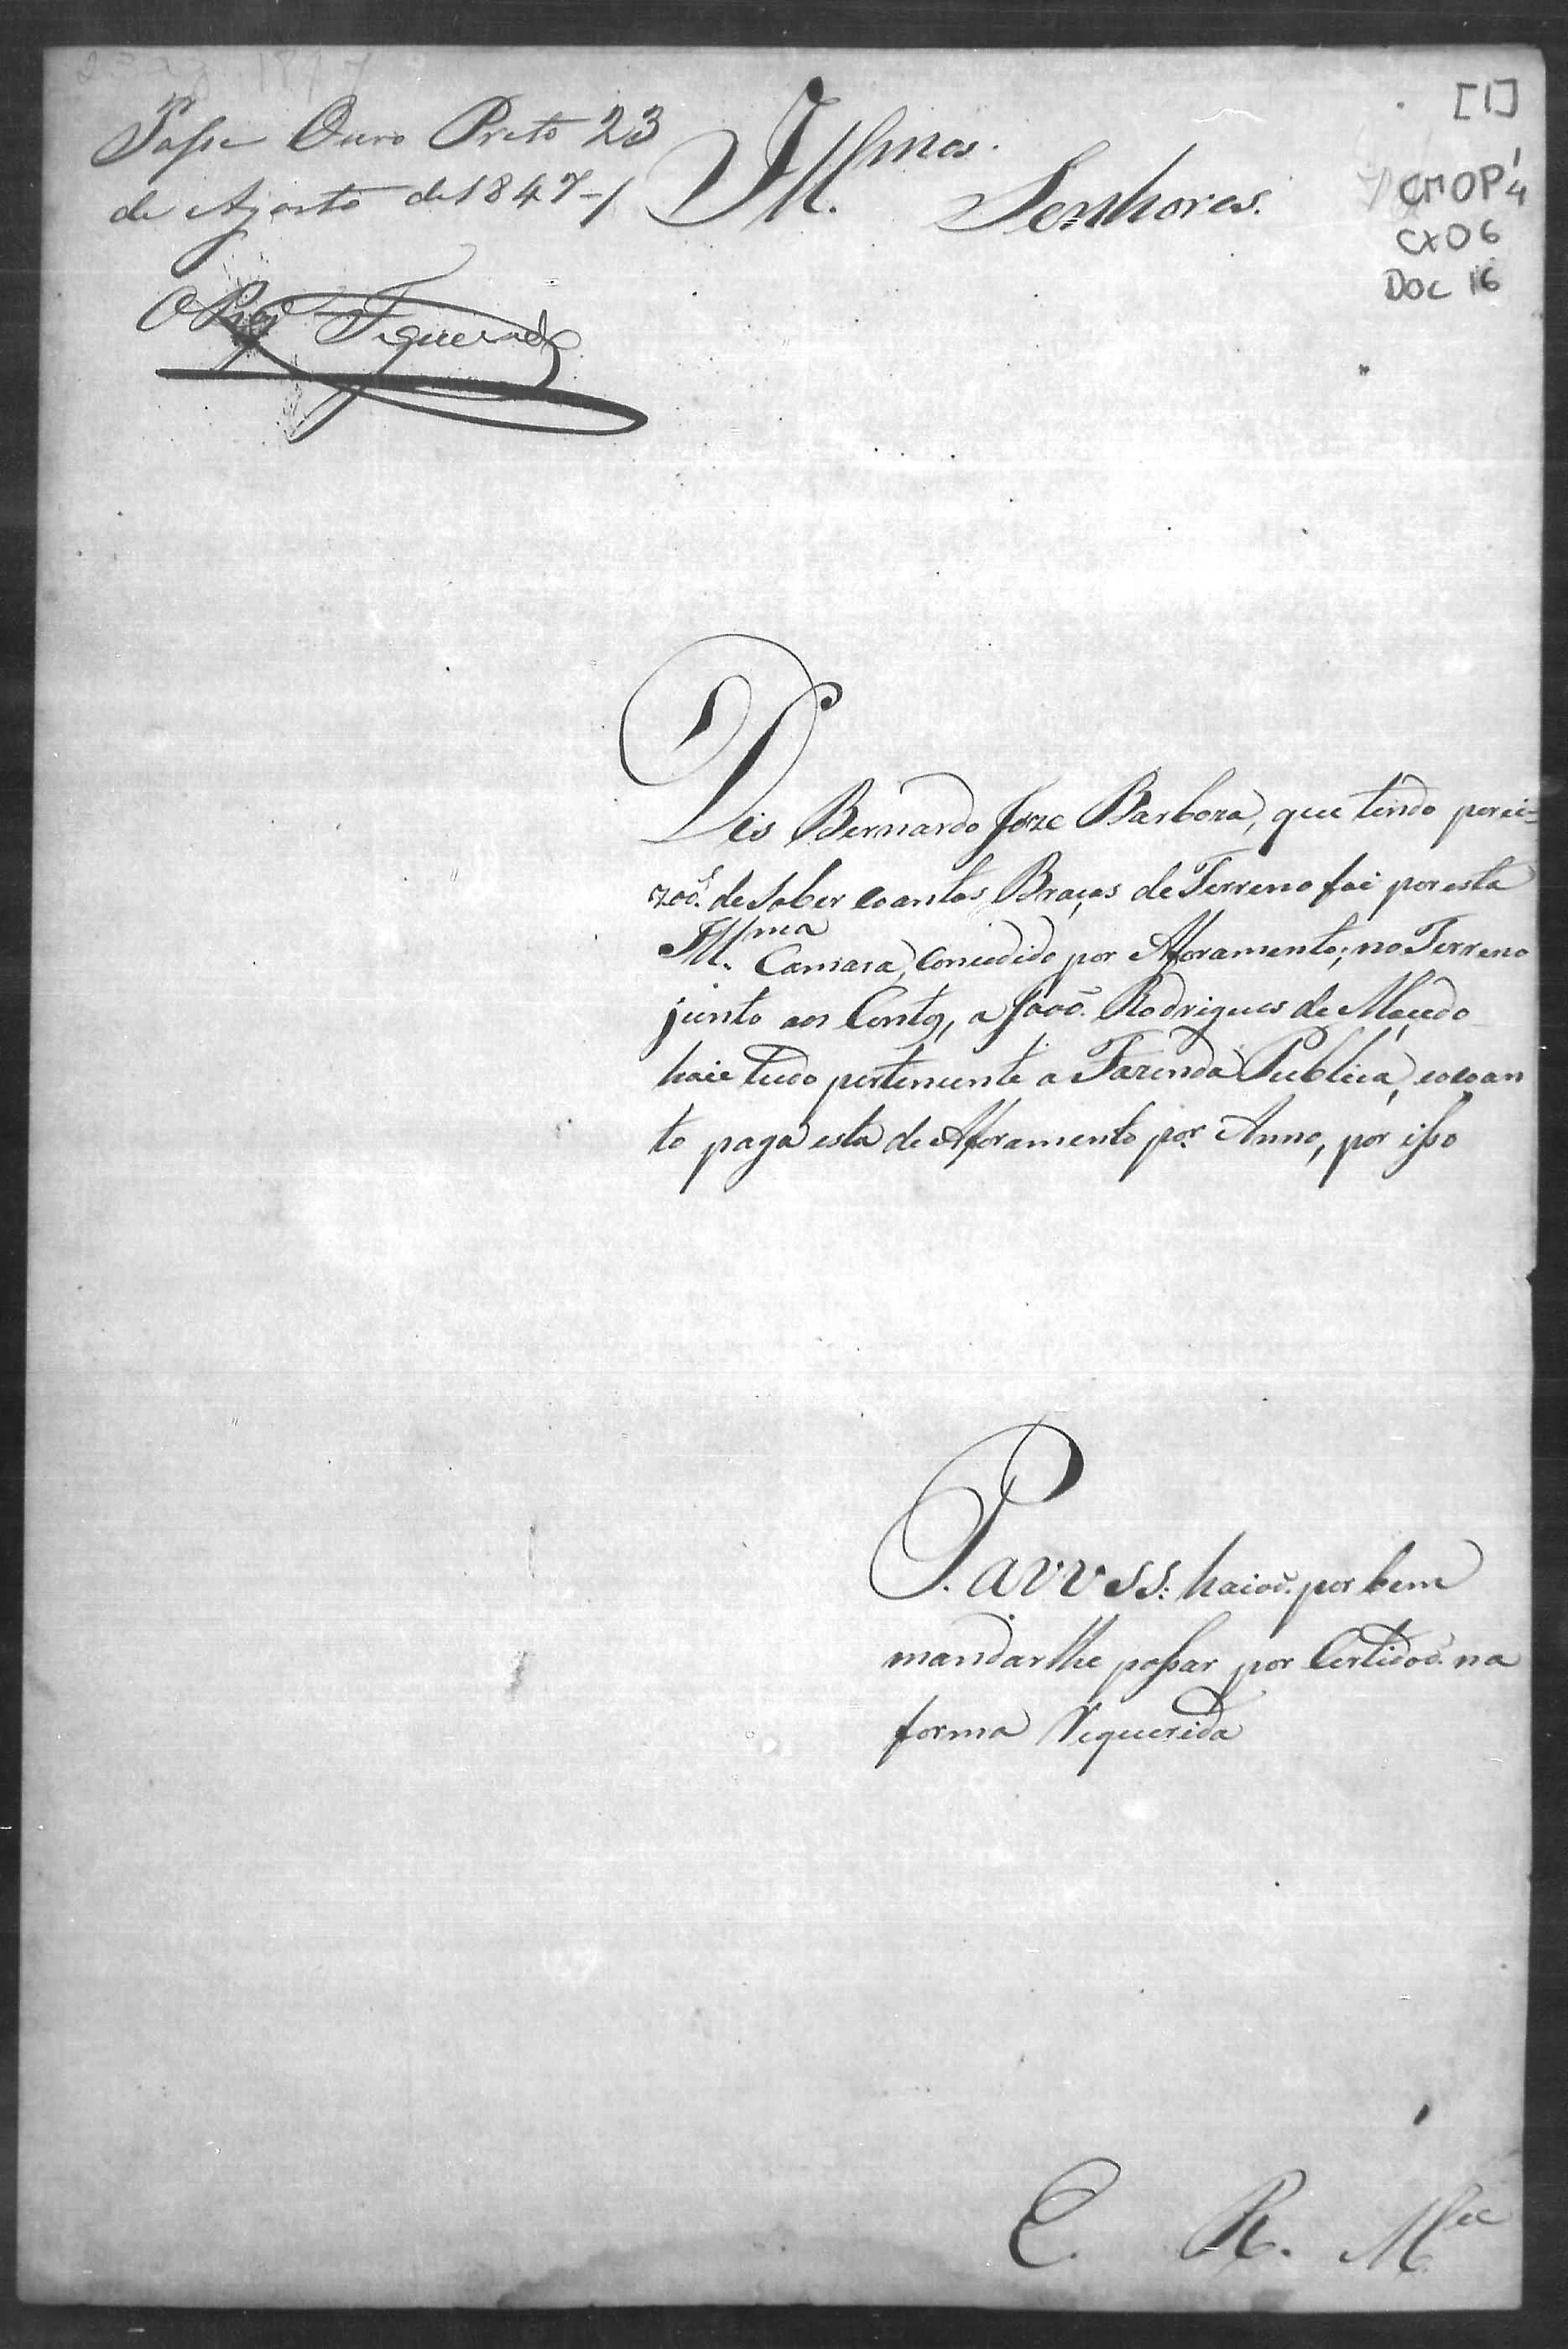 Passe Ouro Preto 23
de Agosto de 1847
Figueredo
Illmos.
Senhores.
[1]
CMOP 1/4
CX06
DOC 16
Dis Bernardo Joze Barboza, que tendo perci=
zoõ. de saber coantas Braças de Terreno foi por esta
Illma. Camara, Concedido por Aforamento; no Terreno
junto aos Contos, a Joaõ. Rodrigues de Macedo
hoie tudo pertencente a Fazenda Publica, ecoan
to paga esta de Aforamento por Anno, por isso
P. a V V S S: haioõ. por bem
mandarlhe passar por Certidoõ. na
forma Requerida
E. R. Mce